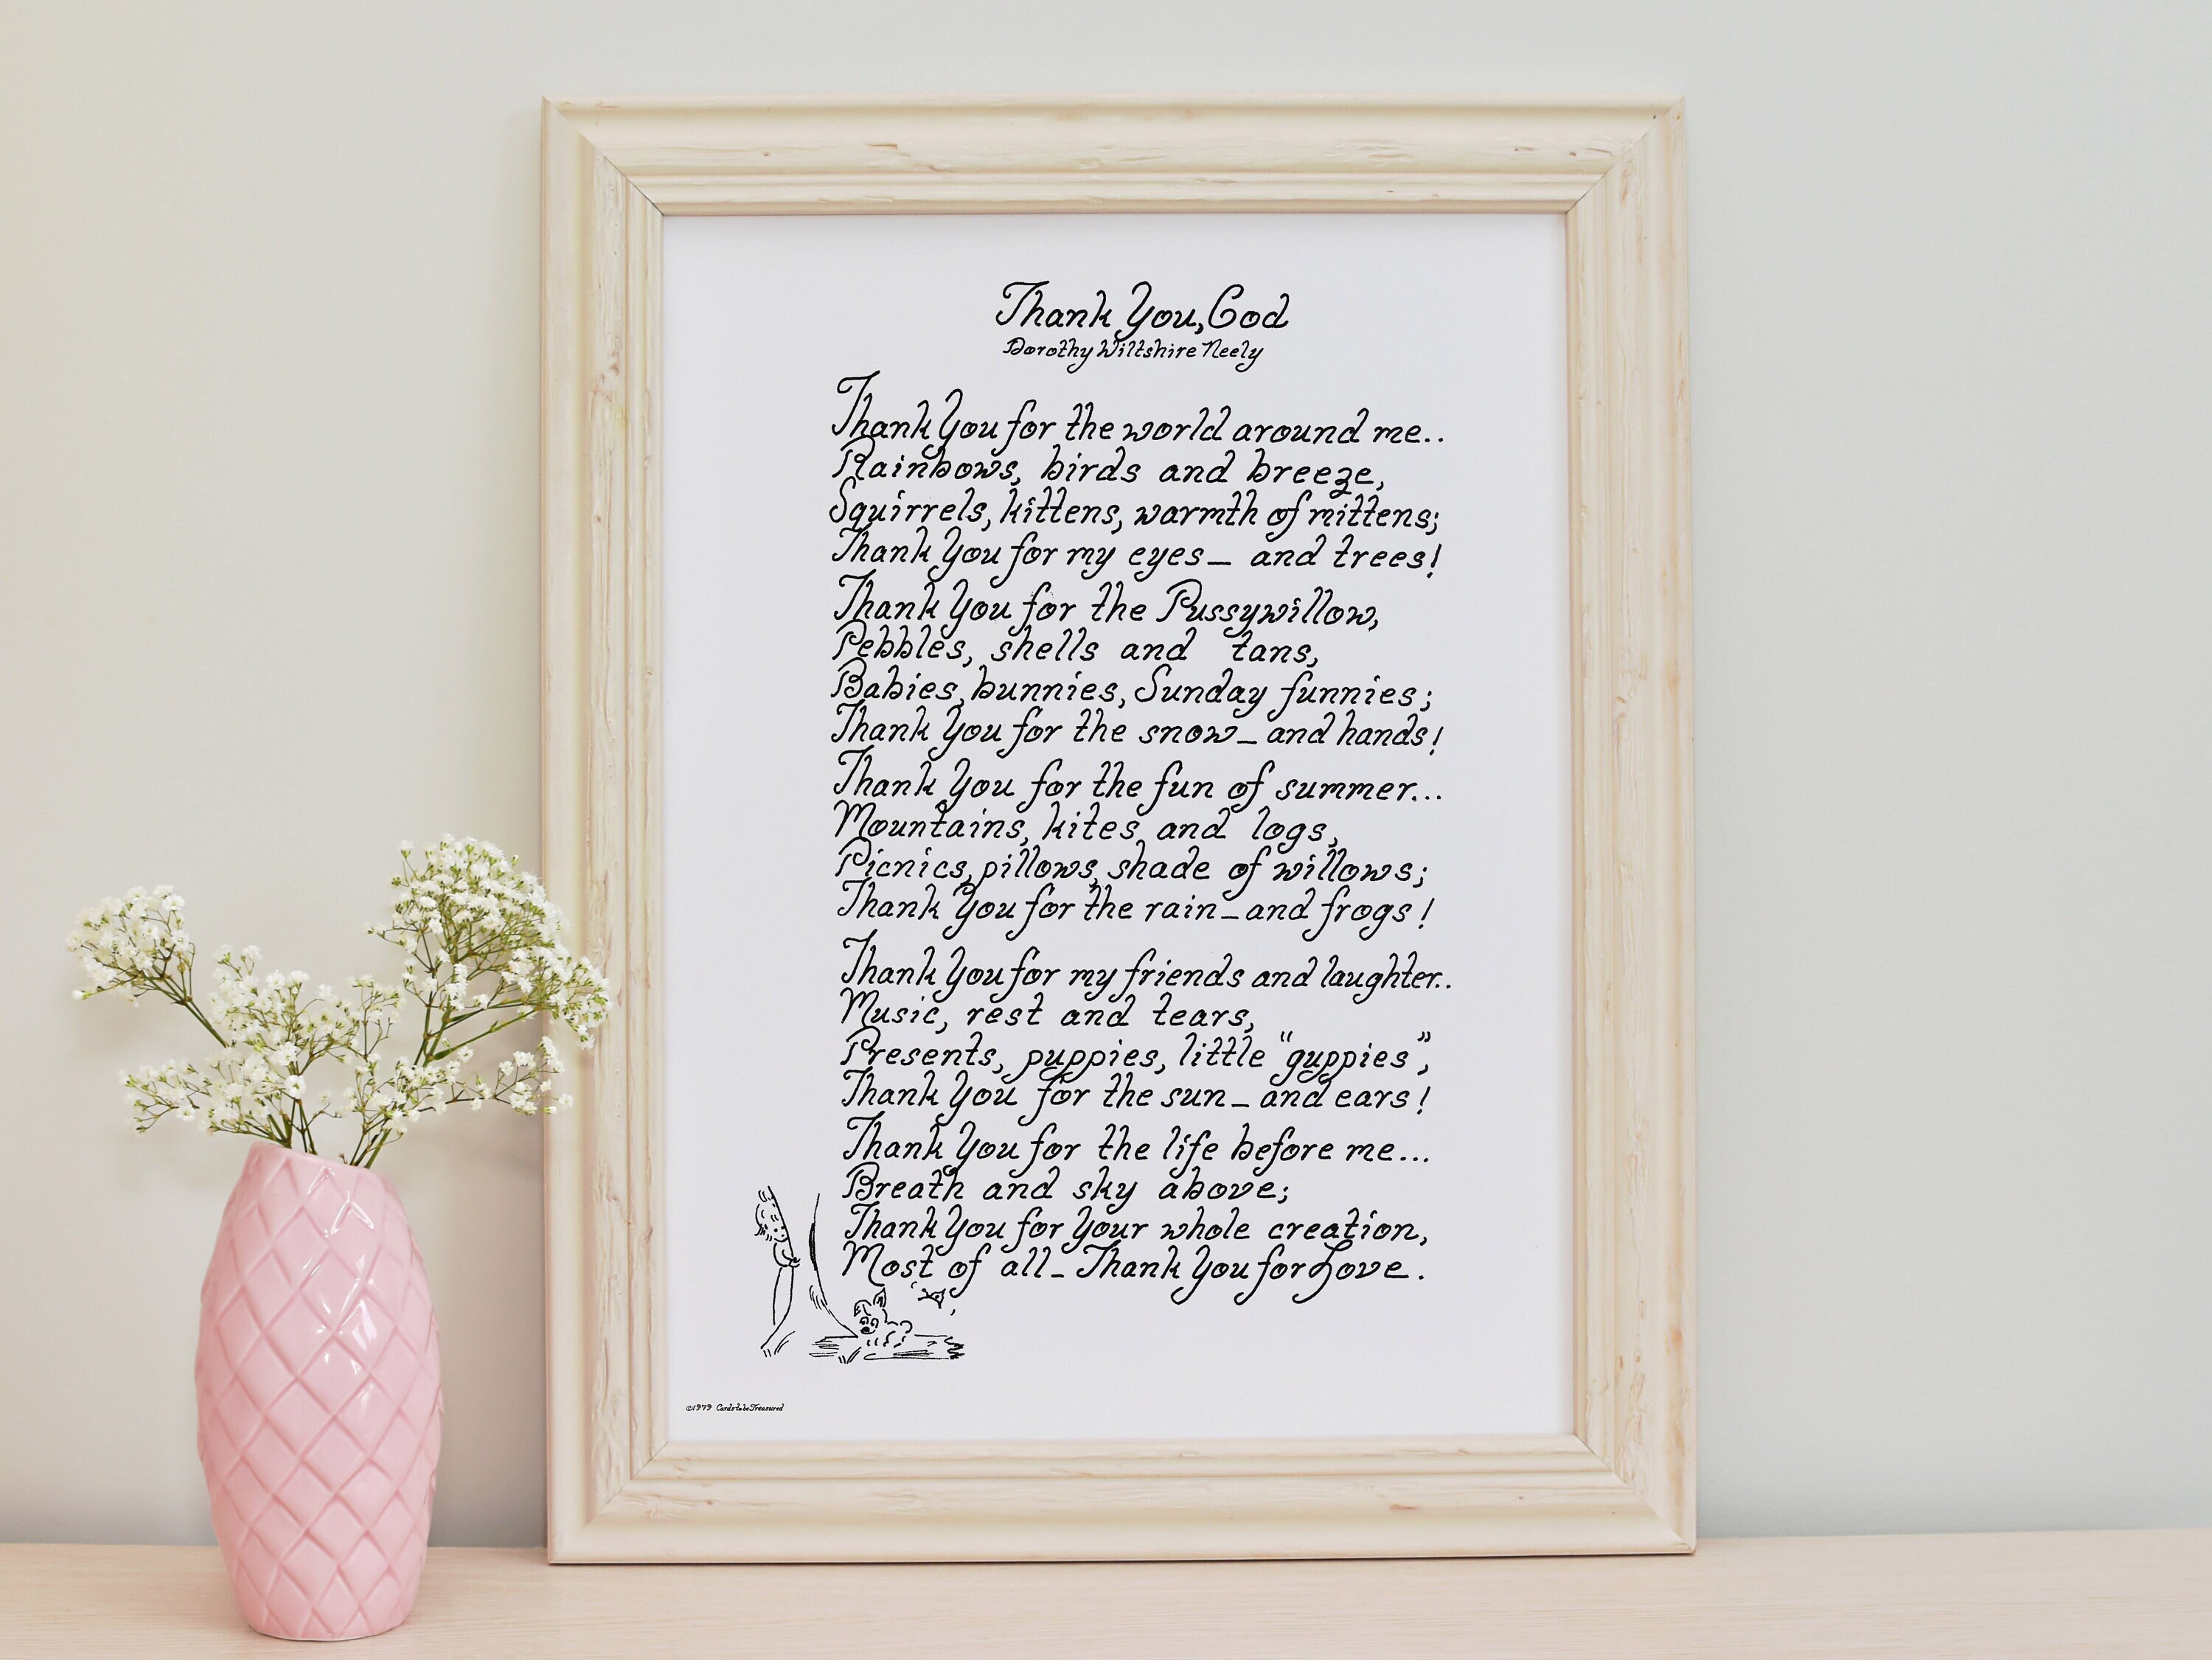 Thank You, God
Dorothy Wiltshire Neely
Thank You for the world around me..
Rainbows, birds and breeze,
Squirrels, kittens, warmth of mittens;
Thank You for my eyes — and trees!
Thank You for the Pussywillow,
Pebbles, shells and tans,
Babies, bunnies, Sunday funnies;
Thank You for the snow — and hands!
Thank You for the fun of summer...
Mountains, kites, and logs,
Picnics, pillows, shade of willows;
Thank You for the rain — and frogs!
Thank You for my friends and laughter..
Music, rest and tears,
Presents, puppies, little "guppies",
Thank You for the sun — and ears!
Thank You for the life before me...
Breath and sky above;
Thank You for Your whole creation,
Most of all — Thank You for Love.
©1979 Cards to be Treasured